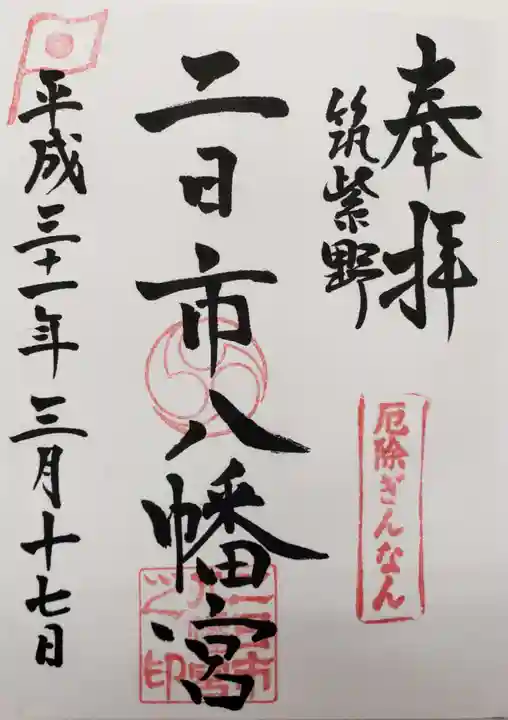 奉拝
筑紫野
厄除ぎんなん
二日市八幡宮
平成三十一年三月十七日